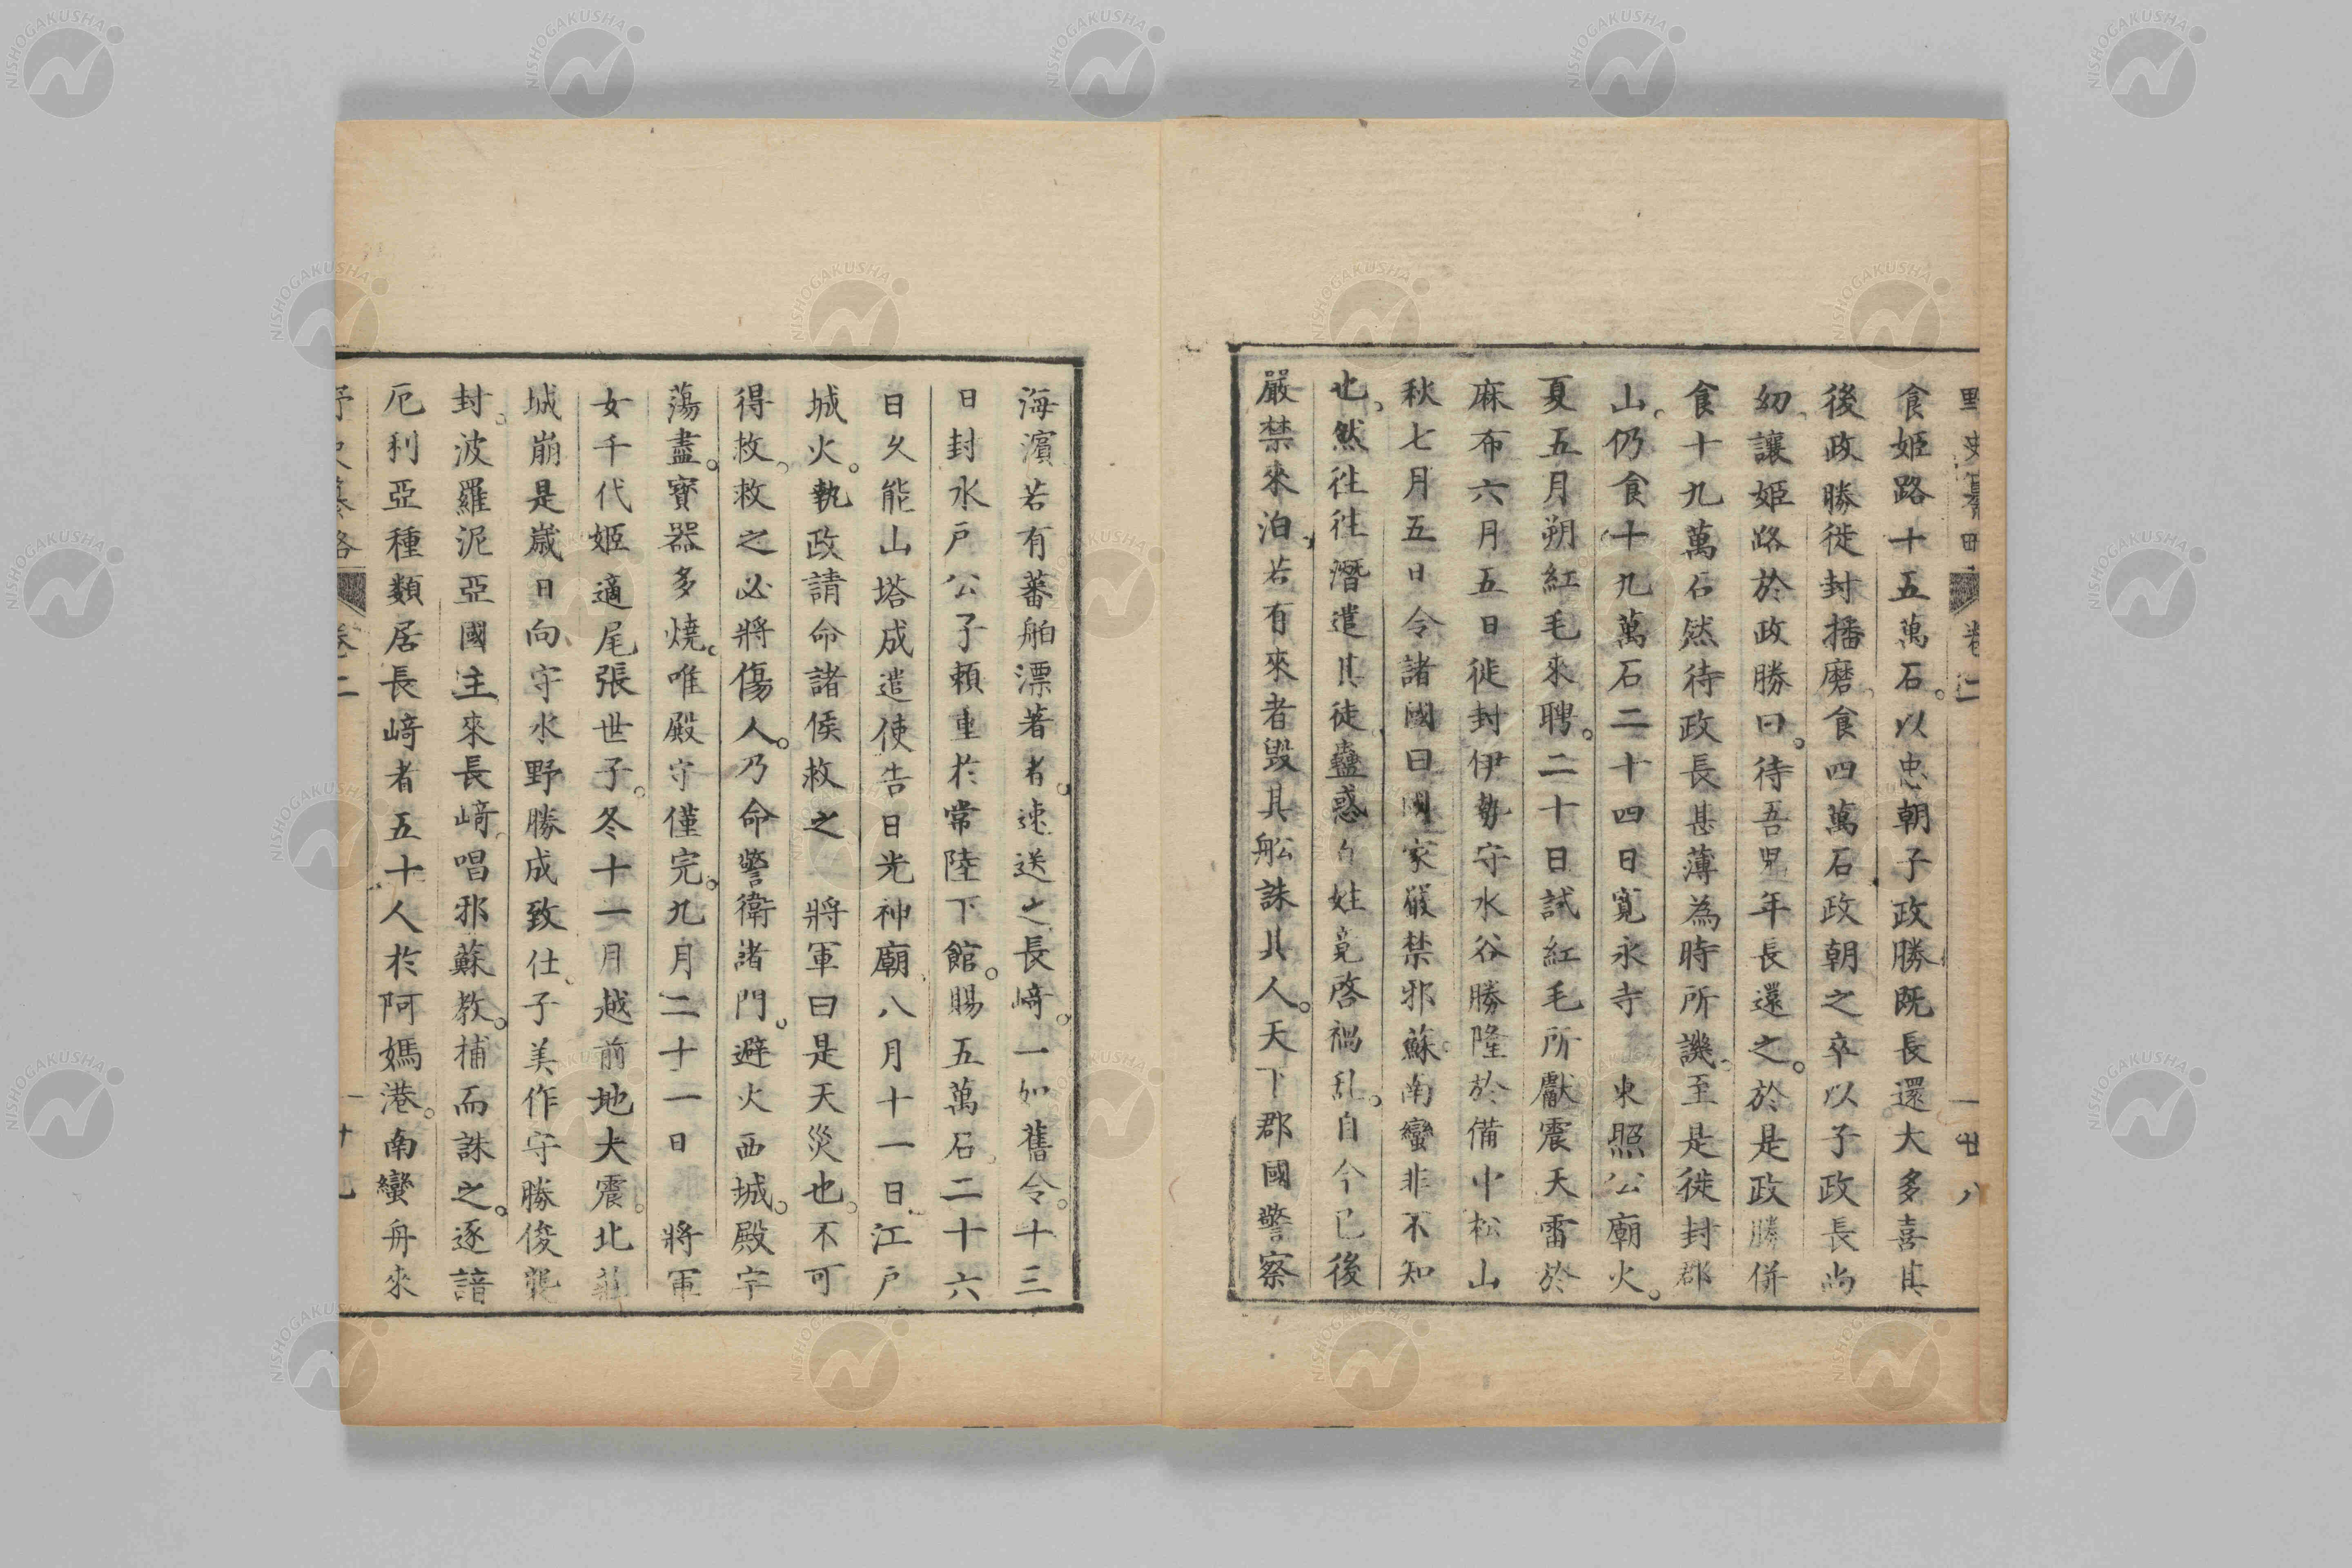 食姬路十五萬石。以忠朝子政勝既長還大多喜其
後政勝徙封播磨、食四萬石政朝之卒以子政長尚
幼、讓姬路於政勝曰。待吾兒年長還之。於是政勝併
食十九萬石然待政長甚薄為時所譏、至是徙封郡
山。仍食十九萬石二十四日寬永寺 東照公廟火。
夏五月朔紅毛來聘。二十日試紅毛所獻震天雷於
麻布六月五日徙封伊勢守水谷勝隆於備中松山
秋七月五日令諸國曰國家嚴禁邪蘇南蠻非不知
也。然往往潛遣其徒、蠱惑姓竟啓禍乱。自今已後
嚴禁來泊、若有來者毀其舩誅其人。天下郡國警察
海濱若有蕃舶漂著者。速送之長﨑。一如舊令。十三
日封水戶公子賴重於常陸下館。賜五萬石。二十六
日久能山塔成遣使告日光神廟、八月十一日江戶
城火。執政請命諸侯救之 將軍曰是天災也。不可
得救、救之必將傷人。乃命警衛諸門。避火西城。殿宇
蕩盡。寶器多燒。唯殿守僅完。九月二十一日 將軍
女千代姬適尾張世子。冬十一月越前地大震。北莊
城崩是歲日向守水野勝成致仕、子美作守勝俊襲
封。波羅泥亞國主來長﨑。唱邪蘇教。捕而誅之。逐諳
厄利亞種類居長﨑者五十人於阿媽港。南蠻舟來